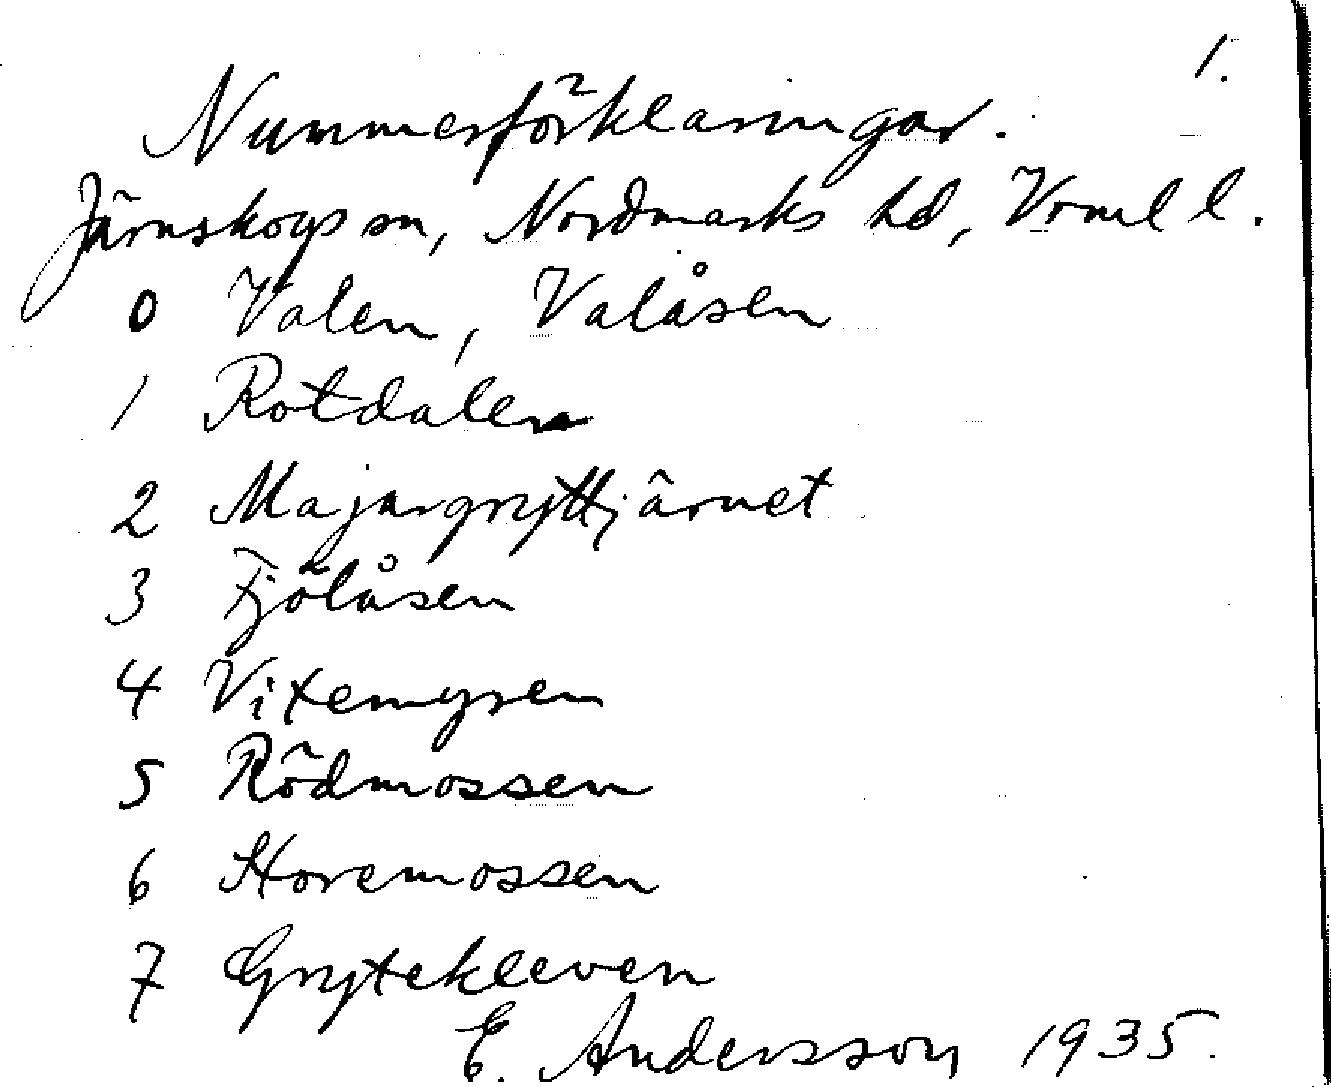 1.
Nummerförklaringar.
Järnskogs sn, Nordmarks hd, Vrml l.
0 Valen, Valåsen
1 Rotdalen
2 Majargryttjärnet
3 Fjölåsen
4 Vixemyren
5 Rödmossen
6 Horemossen
7 Grytekleven
E. Andersson 1935.